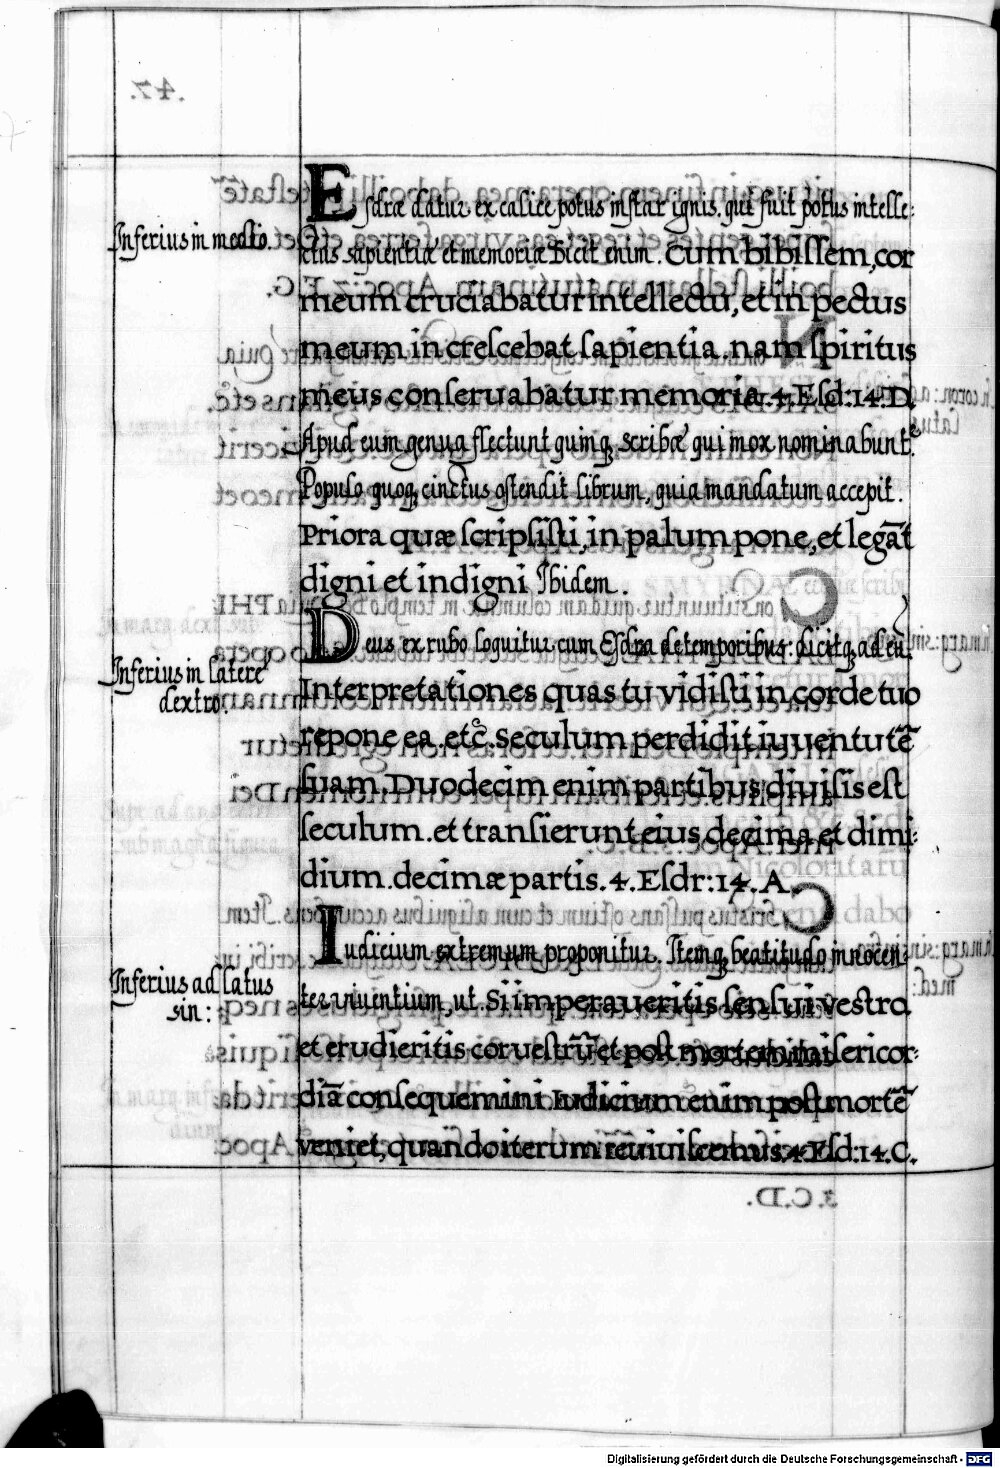 Inferius in medio.
Esdræ datur ex calice potus instar ignis. qui fuit potus intelle:
ctus sapientiæ et memoriæ dicit enim. Cum bibissem, cor
meum cruciabatur intellectu, et in pectus
meum increscebat sapientia. nam spiritus
meus conseruabatur memoria. 4. Esd: 14. D.
Apud eum genua flectunt quinq; scribæ qui mox nominabunt.
Populo quoq; cinctus ostendit librum, quia mandatum accepit.
Priora quæ scripsisti, in palum pone, et legāt
digni et indigni Ibidem.
Inferius in latere
dextro.
Deus ex rubo loquitur cum Esdra de temporibus: dicitq; ad eū.
Interpretationes quas tu vidisti in corde tuo
repone ea. etc̃. Seculum perdidit iuuentutē
suam. Duodecim enim partibus diuisis est
seculum. et transierunt eius decima et dimi:
dium. decimæ partis. 4. Esdr: 14. A.
Inferius ad latus
sin:
Iudicium extremum proponitur. Itemq; beatitudo innocen:
ter viuentium, ut Si imperaueritis sensui vestro
et erudieritis cor uestrū et post mortem misericor:
diā consequemini. Iudicium enim post mortē
veniet, quando iterum reuiuiscemus. 4. Esd: 14. C.
Digitalisierung gefördert durch die Deutsche Forschungsgemeinschaft - DFG